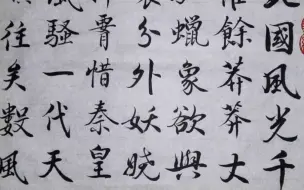 國風光千
餘莽莽大
蠟象欲與
分外妖嬈
惜秦皇
風騷一代天
往矣數風